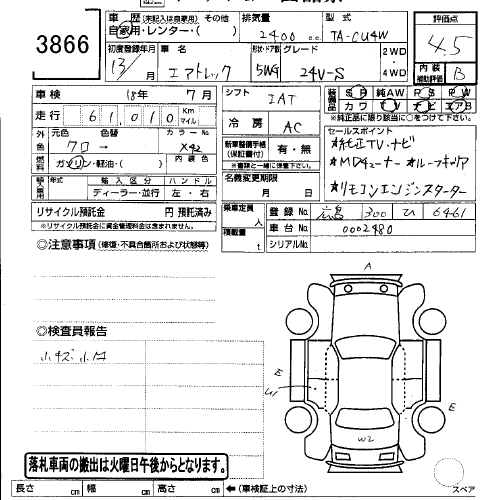 3866
車歴 (未記入は自家用) その他
自家用・レンター・( )
排気量
2400 cc
型式
TA-CU4W
評価点
4.5
初度登録年月
13/ 月
車名
エアトレック
形状・ドア数
5WG
グレード
24V-S
2WD
4WD
内装
補助評価
B
車検 18年 7月
シフト
IAT
装備品
SR 純AW PS PW
カワ TV ナビ エアB
*純正品に限り該当に○をつけて下さい。
走行 61,010 Km マイル
冷房
AC
セールスポイント
*純正TV・ナビ
*MDチューナー *ルーフキャリア
*リモコンエンジンスターター
外色
元色 色替 カラーNo.
クロ → X42
燃料
ガソリン・軽油・( )
内装色
新車整備手帳
(保証書付)
有・無
*書類と一緒に保管下さい。
輸入車用
年式 輸入区分 ハンドル
ディーラー・並行 左・右
名義変更期限
月 日
リサイクル預託金 円 預託済み
*リサイクル預託金に資金管理料金は含まれません。
乗車定員 人
積載量 t
登録No. 広島 300 ひ 6461
車台No. 0002480
シリアルNo.
◎注意事項 (修復・不具合箇所および状態等)
◎検査員報告
小キズ 小凹
A
E
U1
E
W2
落札車両の搬出は火曜日午後からとなります。
長さ cm 幅 cm 高さ cm ←(車検証上の寸法)
スペア